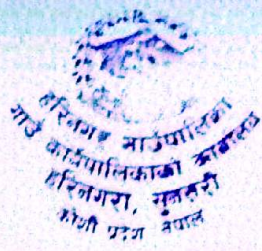 हरिनगर गाउँपालिका
गाउँ कार्यपालिकाको कार्यालय
हरिनगरा, सुनसरी
कोशी प्रदेश नेपाल